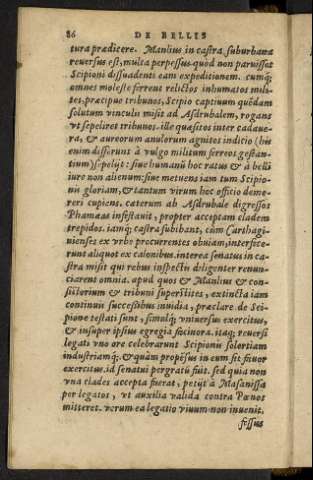 86 DE BELLIS
tura prædicere. Manlius in castra suburbana
reuersus est, multa perpessus quòd non paruisset
Scipioni dissuadenti eam expeditionem. cumq́;
omnes molestè ferrent relictos inhumatos mili-
tes, præcipuè tribunos, Scipio captiuum quendam
solutum vinculis misit ad Asdrubalem, rogans
vt sepeliret tribunos. ille quæsitos inter cadaue-
ra, & aureorum anulorum agnitos indicio (hic
enim differunt à vulgo militum ferreos gestan-
tium) sepelijt: siue humanū hoc ratus & à belli
iure non alienum: siue metuens iam tum Scipio-
nis gloriam, & tantum virum hoc officio deme-
reri cupiens. cæterum ab Asdrubale digressos
Phamæas infestauit, propter acceptam cladem
trepidos. iamq́; castra subibant, cùm Carthagi-
nienses ex vrbe procurrentes obuiam, interfece-
runt aliquot ex calonibus. interea senatus in ca-
stra misit qui rebus inspectis diligenter renun-
ciarent omnia. apud quos & Manlius & con-
siliorium & tribuni superstites, extincta iam
continuis successibus inuidia, præclarè de Sci-
pione testati sunt, simulq́; vniuersus exercitus,
& insuper ipsius egregia facinora. itaq; reuersi
legati vno ore celebrarunt Scipionis solertiam
industriamq́; & quàm propēsus in eum sit fauor
exercitus. id senatui pergratū fuit. sed quia non
vna clades accepta fuerat, petijt à Masanissa
per legatos, vt auxilia valida contra Pœnos
mitteret. verum ea legatio viuum non inuenit.
fessus